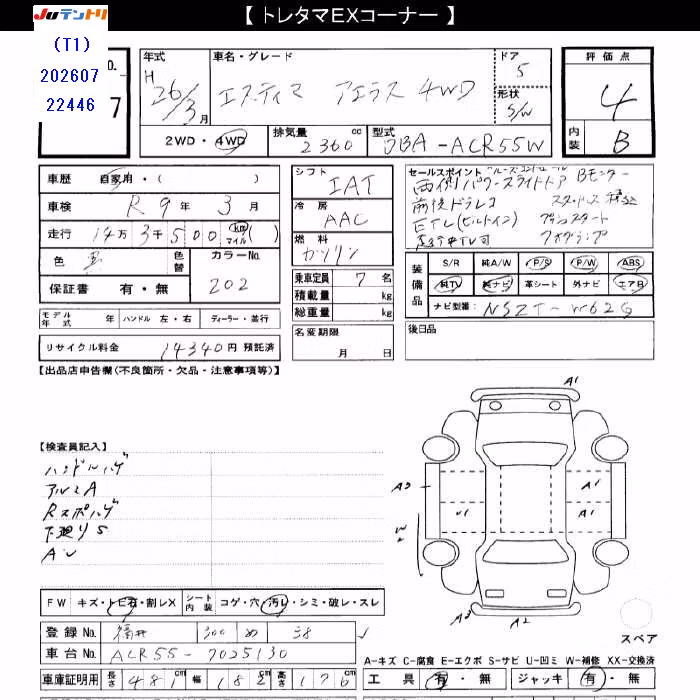 【 トレタマEXコーナー 】
JUテントリ
(T1)
202607
22446
No.
7
年式
H
26/3月
車名・グレード
エスティマ アエラス 4WD
ドア
5
形状
S/W
評価点
4
内装
B
2WD・4WD
排気量
2360cc
型式
DBA-ACR55W
車歴
自家用・( )
車検
R 9年 3月
走行
14万3千500 km マイル ( )
色
黒
色替
カラーNo.
202
保証書 有・無
シフト
IAT
冷房
AAC
燃料
ガソリン
乗車定員 7名
積載量 kg
総重量 kg
名変期限
月 日
セールスポイント クルーズコントロール
両側パワースライドドア Bモニター
前後ドラレコ
ETC(ビルトイン) プッシュスタート
フォグランプ
装備品
S/R 純A/W P/S P/W ABS
純TV 純ナビ 革シート 外ナビ エアB
ナビ型番: NSZT-W62G
後日品
モデル年式 年 ハンドル 左・右 ディーラー・並行
リサイクル料金 14340円 預託済
【出品店申告欄(不良箇所・欠品・注意事項等)】
【検査員記入】
ハンドルハゲ
アルミA
Rスポハゲ
下廻りS
AU
A1
A3
A1
U1
A1
W2
A2
A3
スペア
FW キズ・トビ石・割レX
シート内装 コゲ・穴・汚レ・シミ・破レ・スレ
登録No. 福井 300 め 38
車台No. ACR55-7025130
車庫証明用 長さ 481cm 幅 182cm 高さ 176
A-キズ C-腐食 E-エクボ S-サビ U-凹ミ W-補修 XX-交換済
工具 有・無 ジャッキ 有・無